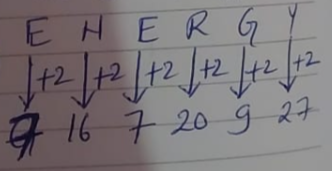 E N E R G Y
+2 +2 +2 +2 +2 +2
7 16 7 20 9 27